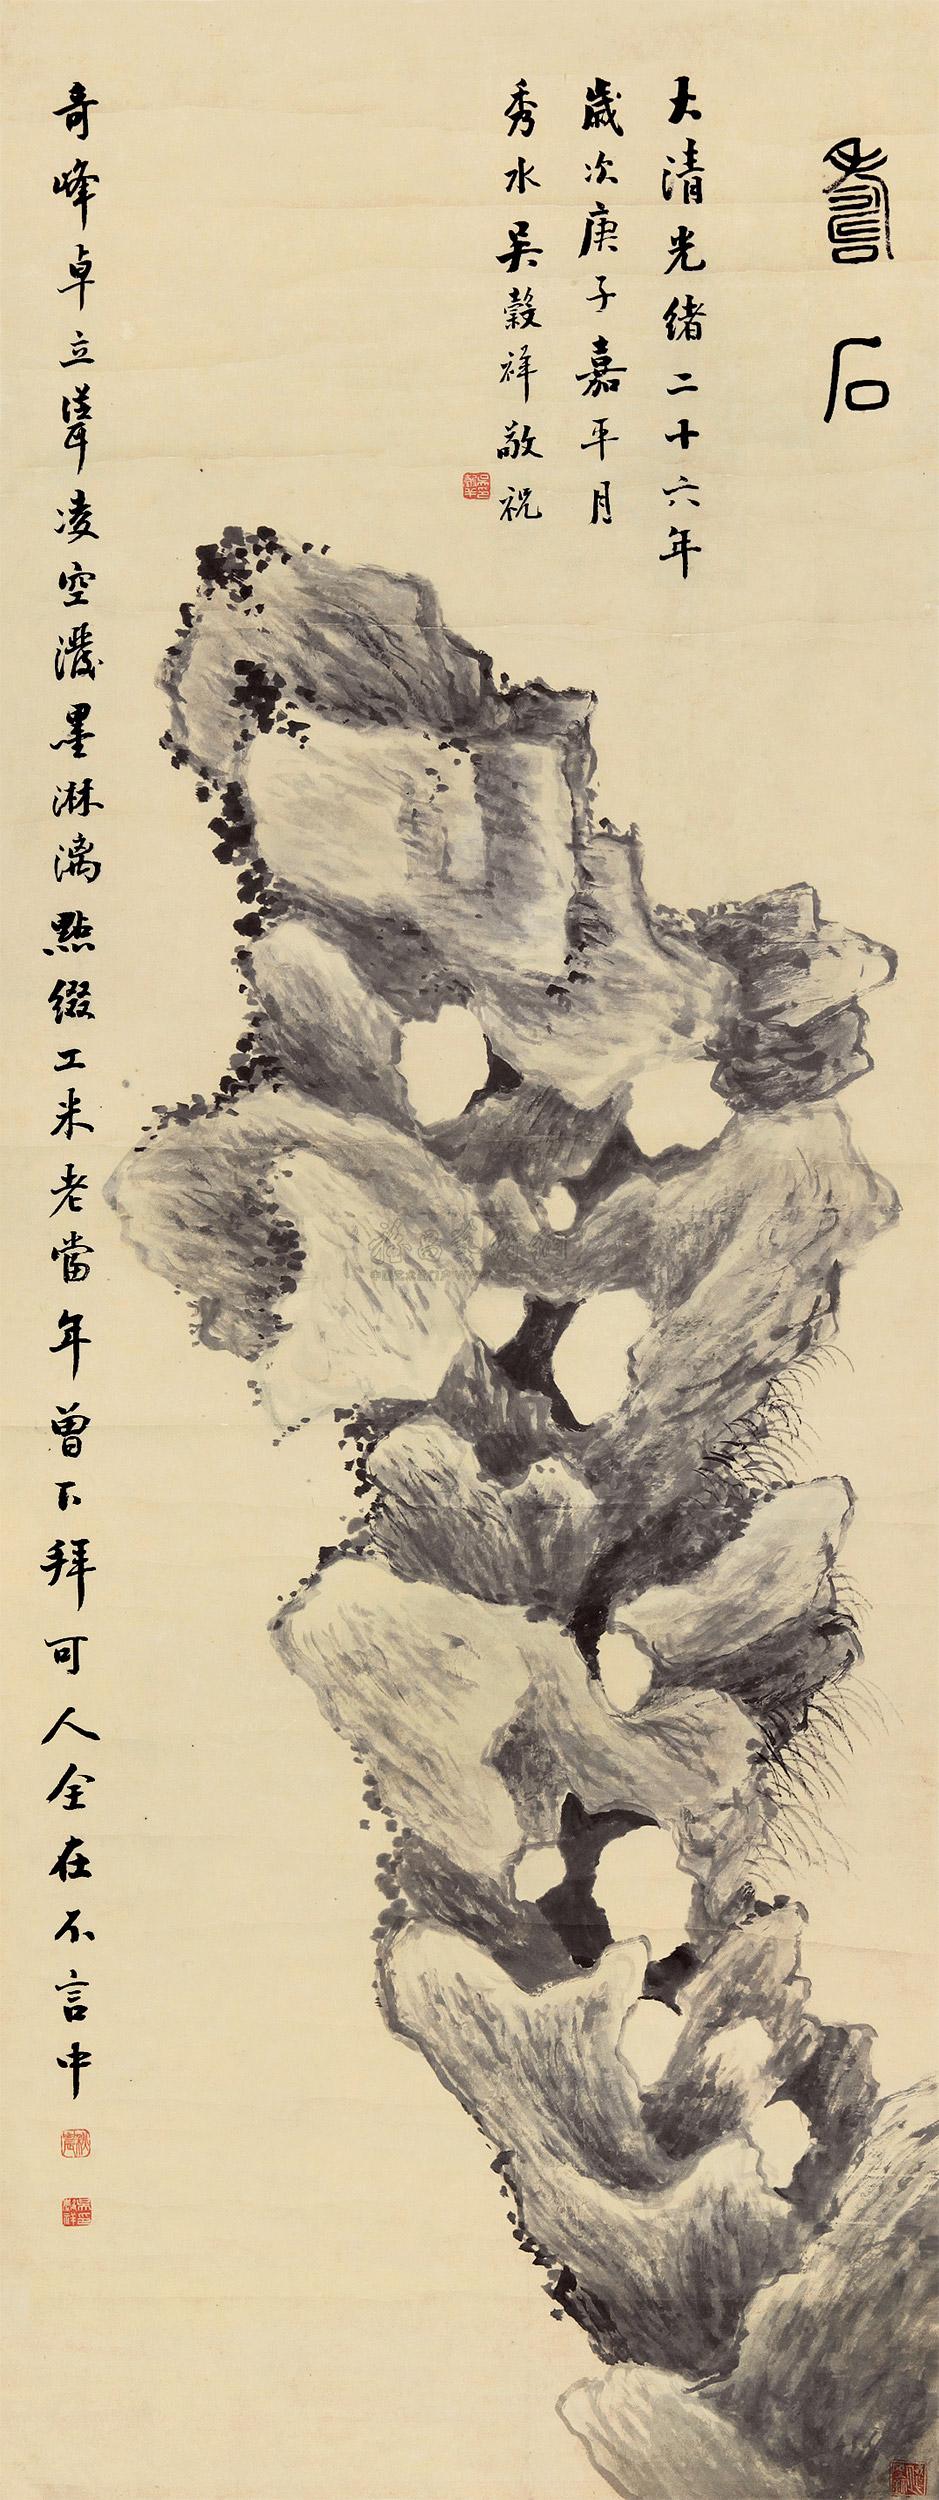 壽石
大清光緒二十六年
歲次庚子嘉平月
秀水吳穀祥敬祝
奇峰卓立聳凌空潑墨淋漓點綴工米老當年曾下拜可人全在不言中